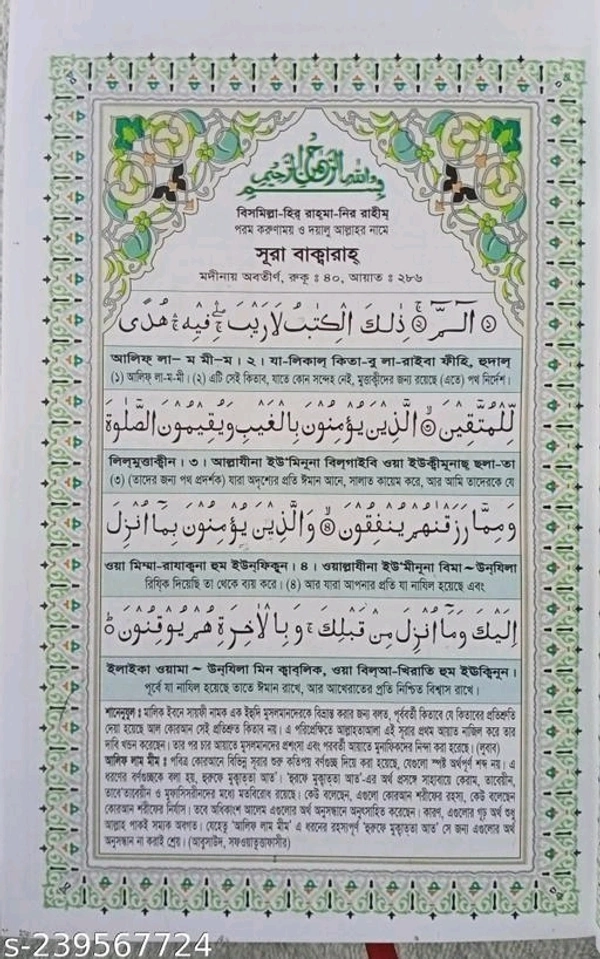 بسم الله الرحمن الرحيم
বিসমিল্লা-হির্ রাহ্মা-নির রাহীম্
পরম করুণাময় ও দয়ালু আল্লাহর নামে
সূরা বাক্বারাহ্
মদীনায় অবতীর্ণ, রুকু ঃ ৪০, আয়াত ঃ ২৮৬
الٓـمّٓ ۚ ذٰلِكَ الْكِتٰبُ لَا رَيْبَ ۛ فِيْهِ ۛ هُدًى
আলিফ্ লা– ম মী–ম। ২। যা-লিকাল্ কিতা-বু লা-রাইবা ফীহি, হুদাল্
(১) আলিফ্ লা-ম-মী। (২) এটি সেই কিতাব, যাতে কোন সন্দেহ নেই, মুত্তাক্বীদের জন্য রয়েছে (এতে) পথ নির্দেশ।
لِّلْمُتَّقِيْنَ ۙ الَّذِيْنَ يُؤْمِنُوْنَ بِالْغَيْبِ وَيُقِيْمُوْنَ الصَّلٰوةَ
লিল্মুত্তাক্বীন। ৩। আল্লাযীনা ইউ'মিনূনা বিল্গাইবি ওয়া ইউক্বীমূনাছ্ ছলা-তা
(৩) (তাদের জন্য পথ প্রদর্শক) যারা অদৃশ্যের প্রতি ঈমান আনে, সালাত কায়েম করে, আর আমি তাদেরকে যে
وَمِمَّا رَزَقْنٰهُمْ يُنْفِقُوْنَ ۙ وَالَّذِيْنَ يُؤْمِنُوْنَ بِمَآ اُنْزِلَ
ওয়া মিম্মা-রাযাক্বনা হুম ইউন্ফিকূন। ৪। ওয়াল্লাযীনা ইউ'মীনূনা বিমা ~ উন্যিলা
রিযিক্ব দিয়েছি তা থেকে ব্যয় করে। (৪) আর যারা আপনার প্রতি যা নাযিল হয়েছে এবং
اِلَيْكَ وَمَآ اُنْزِلَ مِنْ قَبْلِكَ ۚ وَبِالْاٰخِرَةِ هُمْ يُوْقِنُوْنَ
ইলাইকা ওয়ামা ~ উন্যিলা মিন ক্বাব্লিক, ওয়া বিল্আ-খিরাতি হুম ইউক্বিনূন।
পূর্বে যা নাযিল হয়েছে তাতে ঈমান রাখে, আর আখেরাতের প্রতি নিশ্চিত বিশ্বাস রাখে।
শানেনুযুল ঃ মালিক ইবনে সায়ফী নামক এক ইহুদি মুসলমানদেরকে বিভ্রান্ত করার জন্য বলত, পূর্ববর্তী কিতাবে যে কিতাবের প্রতিশ্রুতি
দেয়া হয়েছে আল কোরআন সেই প্রতিশ্রুত কিতাব নয়। এ পরিপ্রেক্ষিতে আল্লাহতাআলা এই সূরার প্রথম আয়াত নাজিল করে তার
দাবি খন্ডন করেছেন। তার পর চার আয়াতে মুসলমানদের প্রশংসা এবং পরবর্তী আয়াতে মুনাফিকদের নিন্দা করা হয়েছে। (লুবাব)
আলিফ লাম মীম ঃ পবিত্র কোরআনে বিভিন্ন সূরার শুরু কতিপয় বর্ণগুচ্ছ দিয়ে করা হয়েছে, যেগুলো স্পষ্ট অর্থপূর্ণ শব্দ নয়। এ
ধরণের বর্ণগুচ্ছকে বলা হয়, হুরুফে মুক্বাত্ত্বা আত'। 'হুরুফে মুক্বাত্ত্বা আত'-এর অর্থ প্রসঙ্গে সাহাবায়ে কেরাম, তাবেয়ীন,
তাবে'তাবেয়ীন ও মুফাসসিরীনদের মধ্যে মতবিরোধ রয়েছে। কেউ বলেছেন, এগুলো কোরআন শরীফের রহস্য, কেউ বলেছেন
কোরআন শরীফের নির্যাস। তবে অধিকাংশ আলেম এগুলোর অর্থ অনুসন্ধানে অনুৎসাহিত করেছেন। কারণ, এগুলোর গূঢ় অর্থ শুধু
আল্লাহ পাকই সম্যক অবগত। যেহেতু 'আলিফ লাম মীম' এ ধরনের রহস্যপূর্ণ 'হুরুফে মুক্বাত্ত্বা আত' সে জন্য এগুলোর অর্থ
অনুসন্ধান না করাই শ্রেয়। (আবুসাউদ, সফওয়াতুত্তাফাসীর)
s-239567724